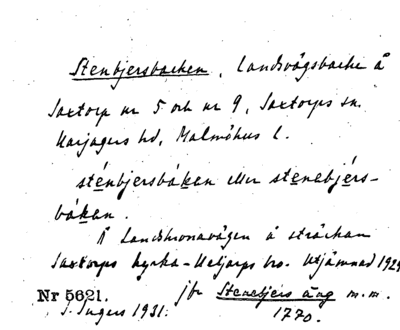 Stenbjersbacken, landsvägsbacke å
Saxtorp nr 5 och nr 9, Saxtorps sn.
Harjagers hd, Malmöhus l.
sténbjersbákan eller stenebjérs-
bákan.
Å Landskronavägen å sträckan
Saxtorps kyrka - Heljarps bro. Utjämnad 1929
Nr 5621. jfr Stenebjers äng m.m.
S. Ingers 1931. 1770.